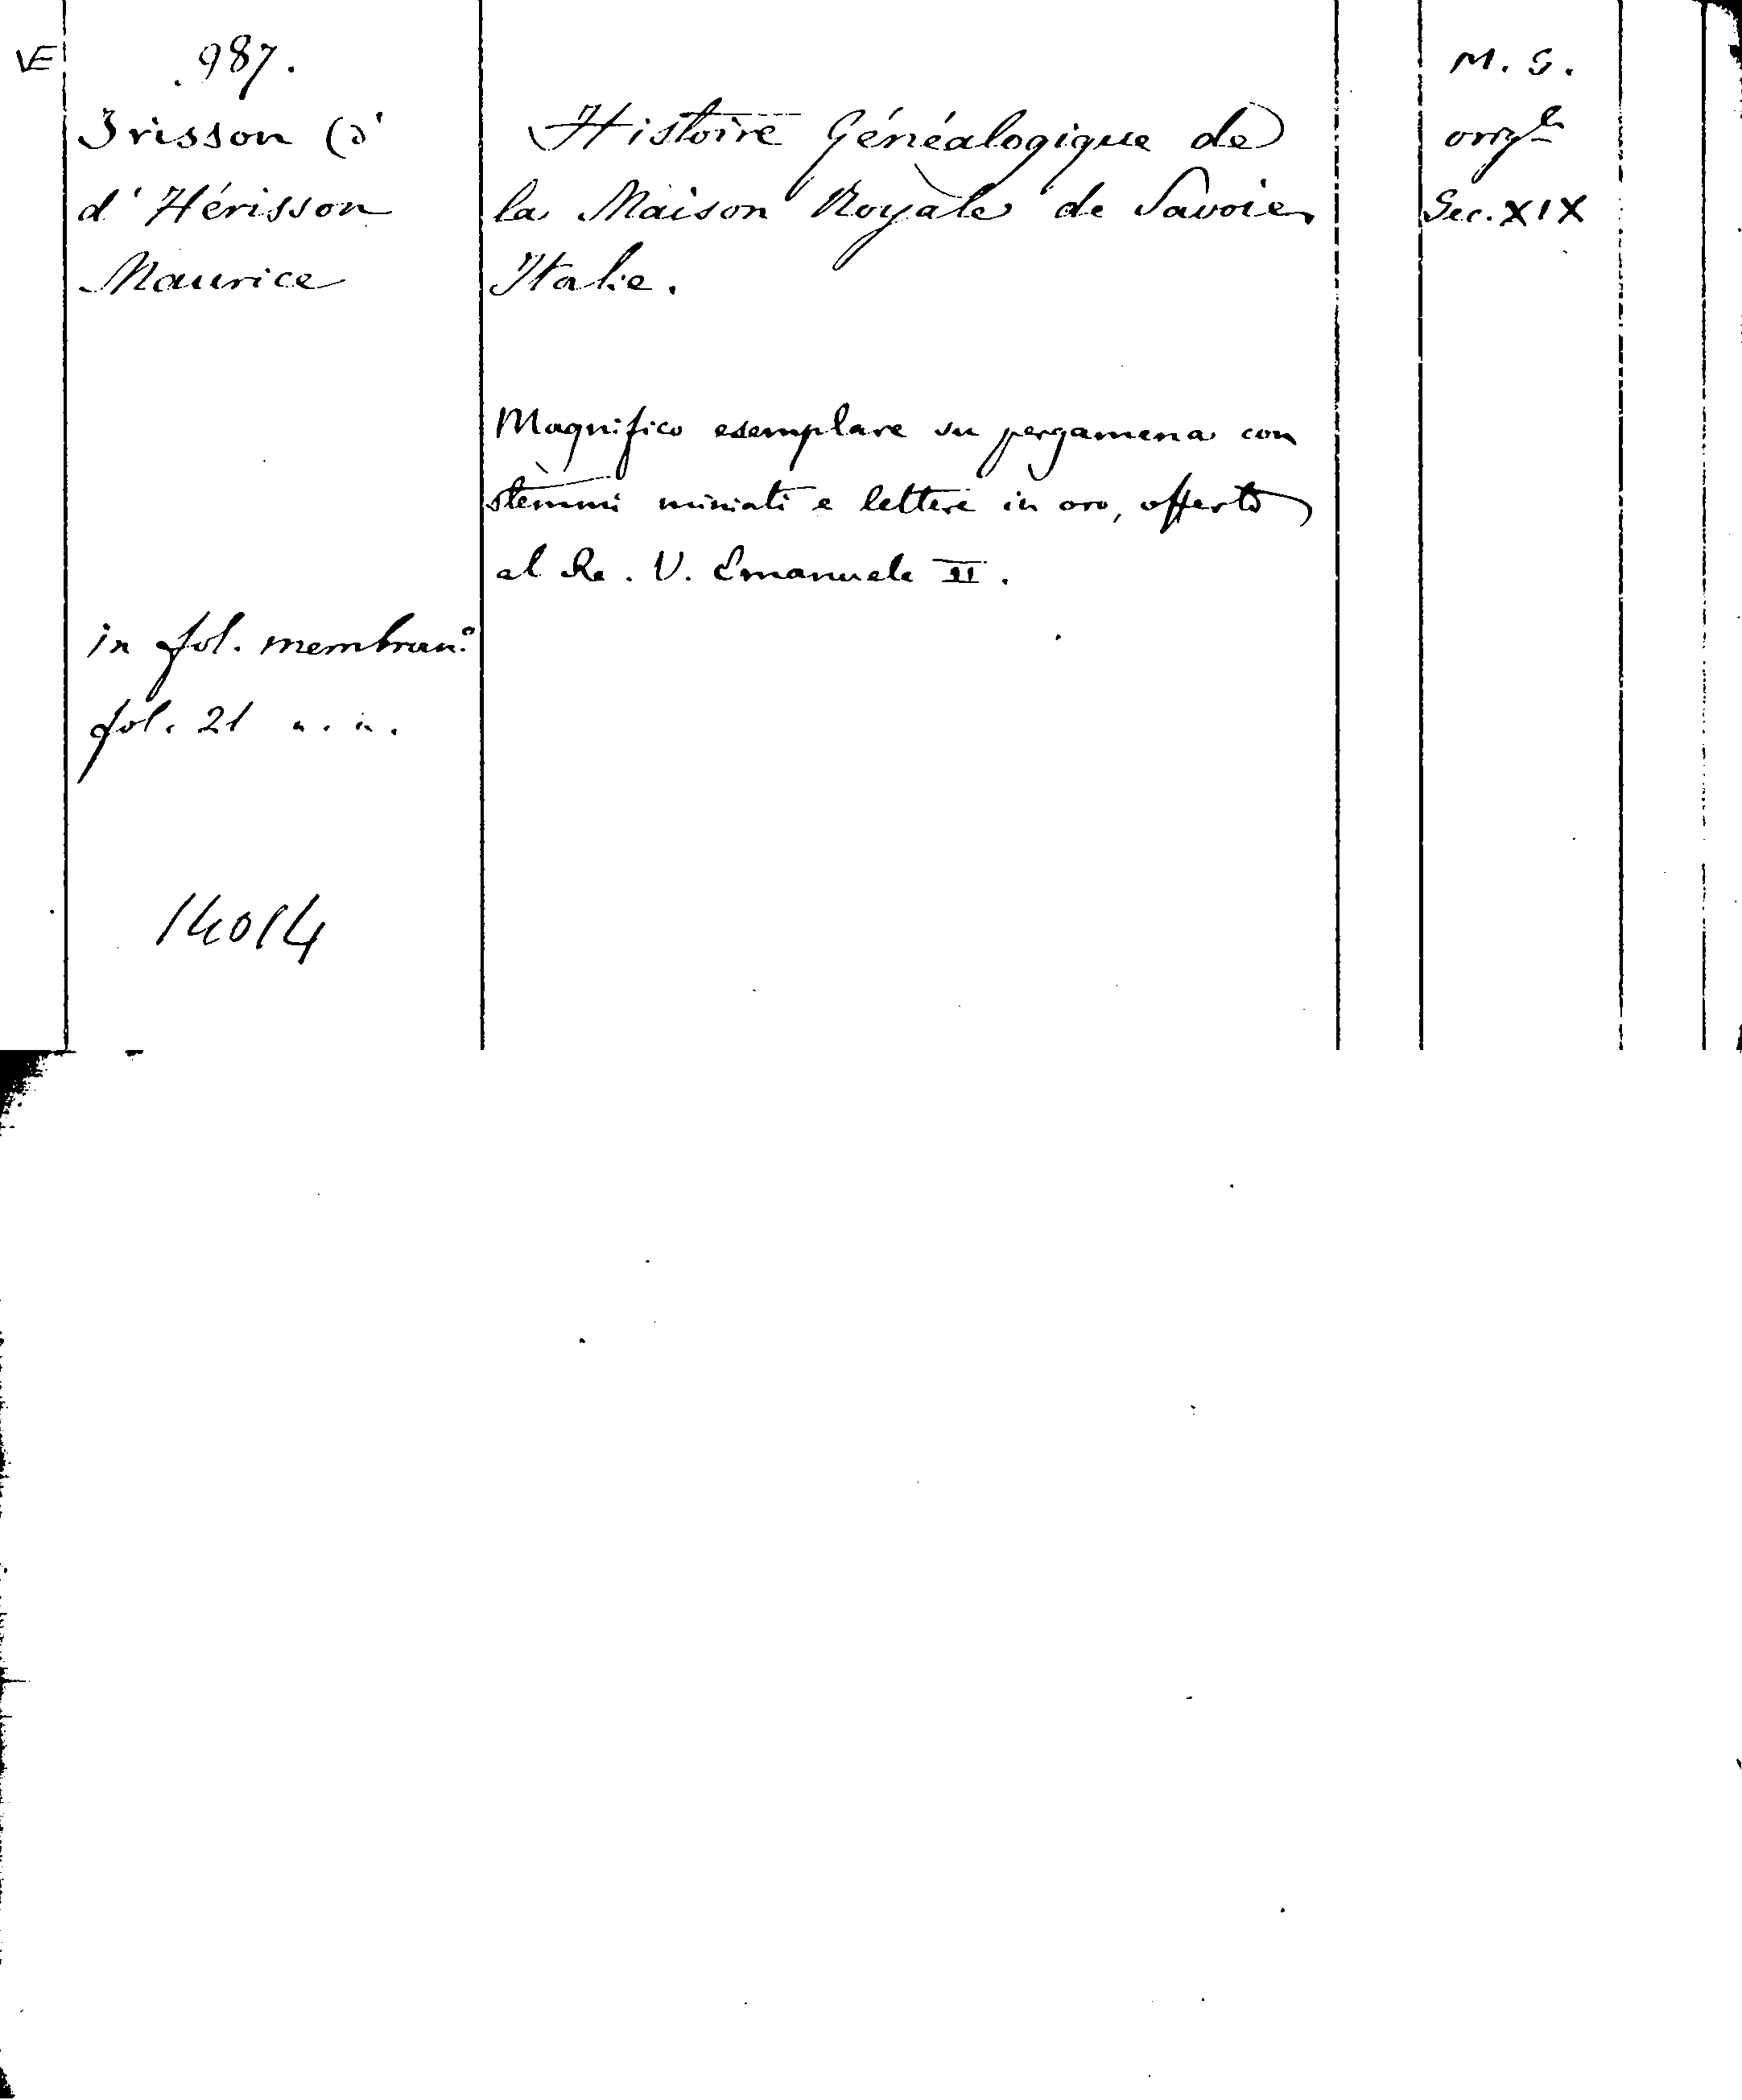 VE
987.
Irisson (d'
d'Hérisson
Maurice
in fol. membran.º
fol. 21 n. n.
14014
Histoire Généalogique de
la Maison Royale de Savoie,
Italie.
Magnifico esemplare su pergamena con
stemmi miniati e lettere in oro, offerto
al Re. V. Emanuele II.
M. S.
orig.le
Sec. XIX